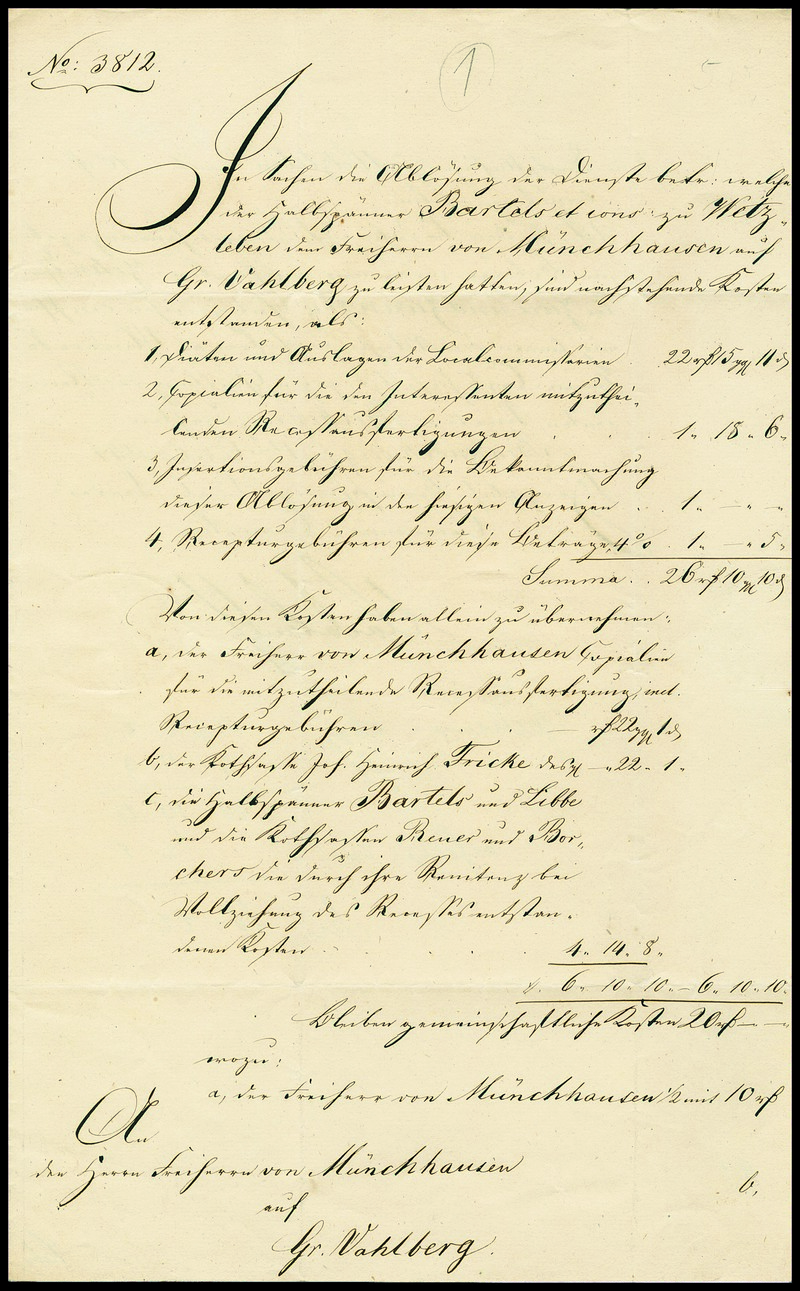 No: 3812.
1
In Sachen die Ablösung der Dienste betr: welche
der Halbspänner Bartels et cons: zu Wetz-
leben dem Freiherrn von Münchhausen auf
Gr. Vahlberg zu leisten hatten, sind nachstehende Kosten
entstanden, als:
1, Diäten und Auslagen der Localcommissarien 22 rß 15 ggl 11 d
2, Copialien für die den Interessenten mitzuthei-
lenden Recessausfertigungen . . . 1 „ 18 „ 6 „
3, Insertionsgebühren für die Bekanntmachung
dieser Ablösung in den hiesigen Anzeigen . . 1 „ — „ — „
4, Recepturgebühren für diese Beträge, 4% . 1 „ — „ 5 „
Summa . . 26 rß 10 ggl 10 d
Von diesen Kosten haben allein zu übernehmen:
a, der Freiherr von Münchhausen Copialien
für die mitzutheilende Recessausfertigung, incl.
Recepturgebühren . . — rß 22 ggl 1 d
b, der Kothsasse Joh. Heinrich Fricke desgl — „ 22 „ 1 „
c, die Halbspänner Bartels und Libbe
und die Kothsassen Reuer und Bor-
chers die durch ihre Renitenz bei
Vollziehung des Recesses entstan-
denen Kosten . . . 4 „ 14 „ 8 „
6 „ 10 „ 10 „ — 6 „ 10 „ 10 „
Bleiben gemeinschaftliche Kosten 20 rß — —
wozu:
a, der Freiherr von Münchhausen 1/2 mit 10 rß
An
den Herrn Freiherrn von Münchhausen
b,
auf
Gr. Vahlberg.